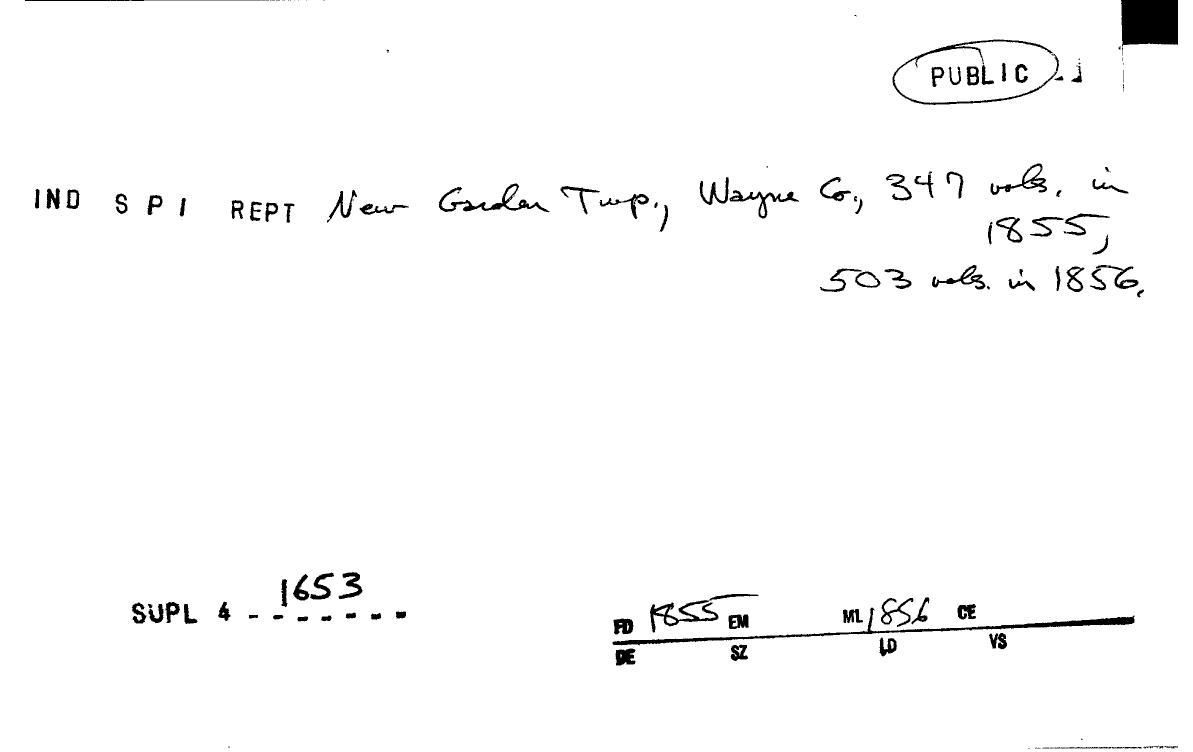 PUBLIC
IND S P I REPT New Garden Twp., Wayne Co., 347 vols. in
1855,
503 vols. in 1856.
1653
SUPL 4 - - - - - - -
FD 1855 EM ML 1856 CE
DE SZ LD VS